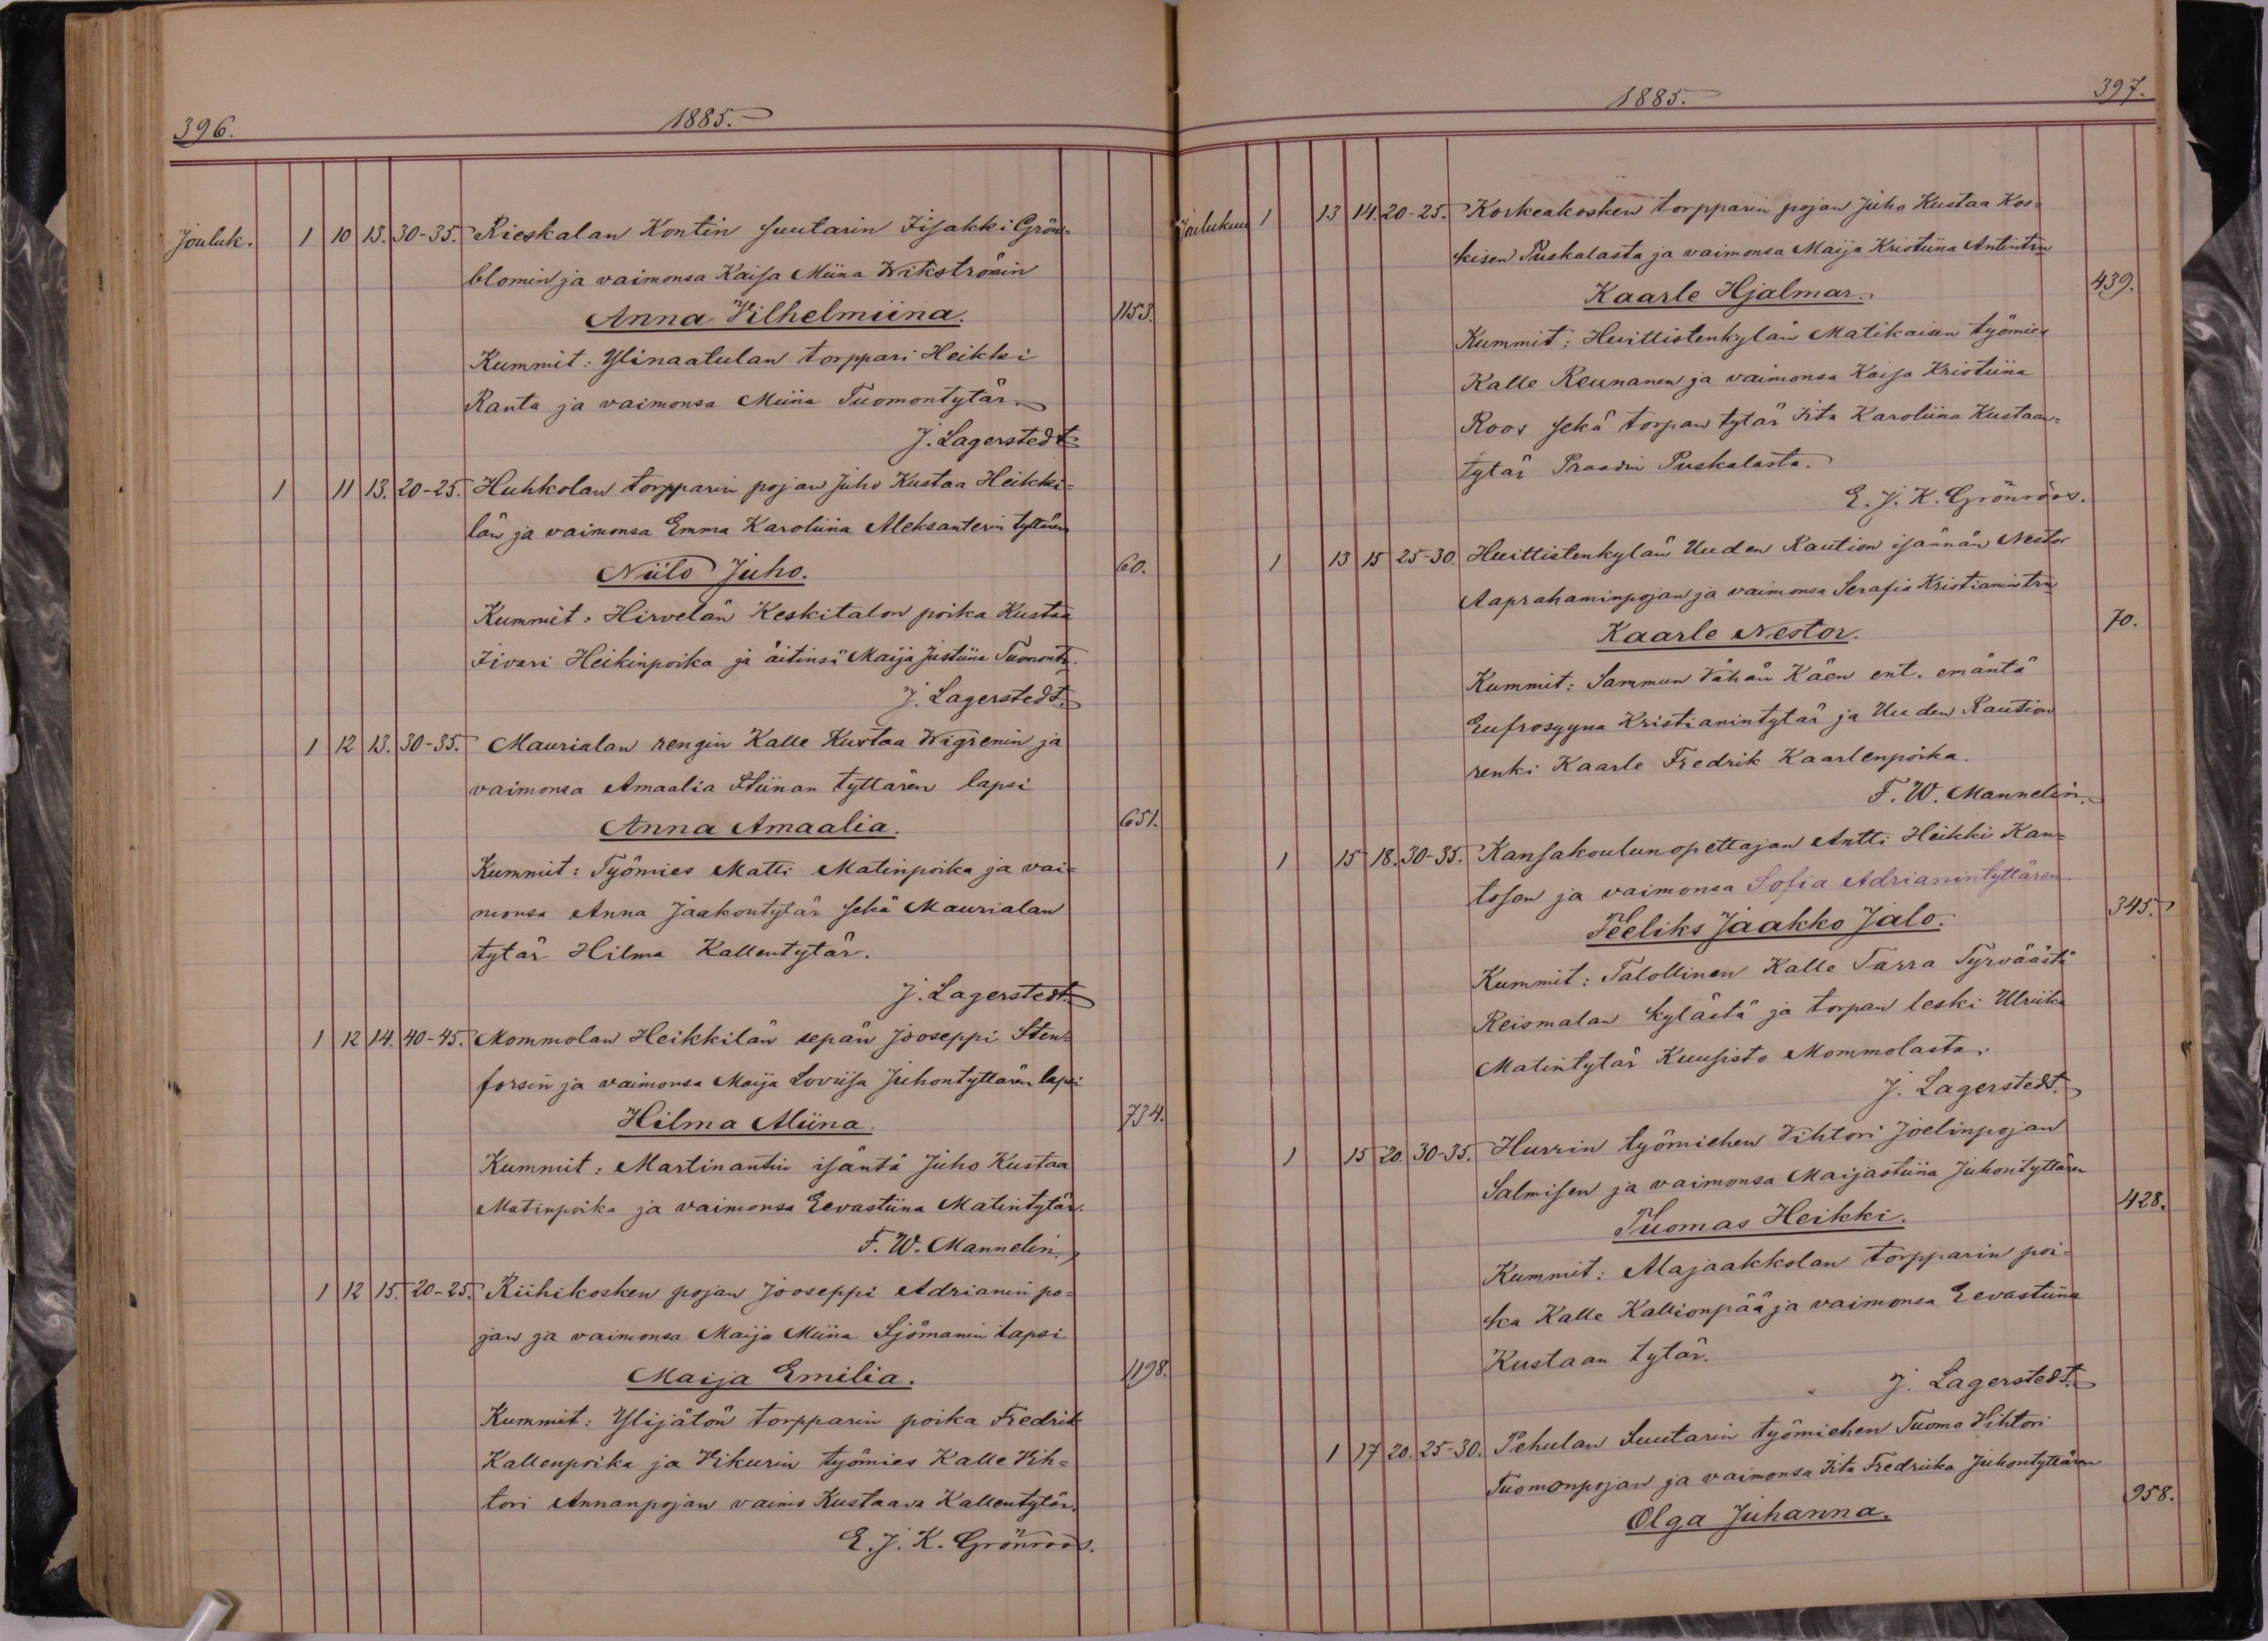 396.
1885.
Jouluk. 1 10 13. 30-35. Rieskalan Kontin suutarin Iisakki Grön=
blomin ja vaimonsa Kaisa Miina Wikströmin
Anna Vilhelmiina. 1153.
Kummit: Ylinaatulan torppari Heikki
Ranta ja vaimonsa Miina Tuomontytär.
J. Lagerstedt.
1 11 13. 20-25. Huhkolan torpparin pojan Juho Kustaa Heikki=
län ja vaimonsa Emma Karoliina Aleksanterin tyttären
Niilo Juho. 60.
Kummit: Hirvelän Keskitalon poika Kustaa
Iivari Heikinpoika ja äitinsä Maija Justiina Tuomontr.
J. Lagerstedt.
1 12 13. 30-35. Maurialan rengin Kalle Kustaa Wigrenin ja
vaimonsa Amaalia Stiinan tyttären lapsi
Anna Amaalia. 651.
Kummit: Työmies Matti Matinpoika ja vai=
monsa Anna Jaakontytär sekä Maurialan
tytär Hilma Kallentytär.
J. Lagerstedt.
1 12 14. 40-45. Mommolan Heikkilän sepän Jooseppi Sten=
forsin ja vaimonsa Maija Loviisa Juhontyttären lapsi
Hilma Miina. 734.
Kummit: Martinantin isäntä Juho Kustaa
Matinpoika ja vaimonsa Eevastiina Matintytär.
F. W. Mannelin.
1 12 15. 20-25. Riihikosken pojan Jooseppi Adrianin po=
jan ja vaimonsa Maija Miina Sjömanin lapsi
Maija Emilia. 1198.
Kummit: Ylijätön torpparin poika Fredrik
Kallenpoika ja Vikurin työmies Kalle Vih=
tori Annanpojan vaimo Kustaava Kallentytär.
E. J. K. Grönroos.
1885.
397.
Joulukuu 1 13 14. 20-25. Korkeakosken torpparin pojan Juho Kustaa Kos=
kisen Puskalasta ja vaimonsa Maija Kristiina Antintrn
Kaarle Hjalmar. 439.
Kummit: Huittistenkylän Matikaisen työmies
Kalle Reunanen ja vaimonsa Kaisa Kristiina
Roos sekä torpan tytär Iita Karoliina Kustaan=
tytär Praadin Puskalasta.
E. J. K. Grönroos.
1 13 15 25-30. Huittistenkylän Uuden Raution isännän Nestor
Aaprahaminpojan ja vaimonsa Serafia Kristianintrn
Kaarle Nestor. 70.
Kummit: Sammun Vähän Käen ent. emäntä
Eufrosyyna Kristianintytär ja Uuden Raution
renki Kaarle Fredrik Kaarlenpoika.
F. W. Mannelin.
1 15 18. 30-35. Kansakoulunopettajan Antti Heikki Kan=
tosen ja vaimonsa Sofia Adrianintyttären
Feeliks Jaakko Jalo. 345.
Kummit: Talollinen Kalle Tarra Tyrväästä
Reismalan kylästä ja torpan leski Ulriika
Matintytär Kuusisto Mommolasta.
J. Lagerstedt.
1 15 20. 30-35. Hurrin työmiehen Vihtori Joelinpojan
Salmisen ja vaimonsa Maijastiina Juhontyttären
Tuomas Heikki. 428.
Kummit: Alajaakkolan torpparin poi=
ka Kalle Kallionpää ja vaimonsa Eevastiina
Kustaan tytär.
J. Lagerstedt.
1 17 20. 25-30. Pehulan Suutarin työmiehen Tuomo Vihtori
Tuomonpojan ja vaimonsa Iita Fredriika Juhontyttären
Olga Juhanna. 958.